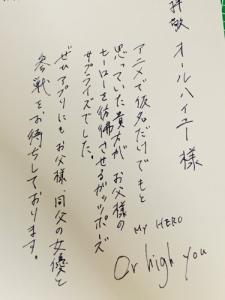 拝敬 オールハイユー様
アニメで仮名だけでもと
思っていた貴方が お父様の
ヒーローを彷彿させるガッツポーズ
サプライズでした。
ぜひアプリにもお父様、同父の女優と
参戦をお待ちしております。
MY HERO
Or high you